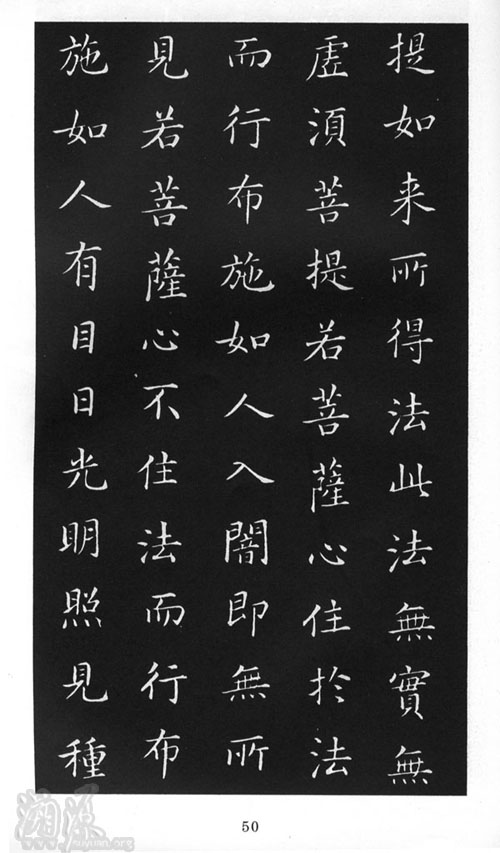 提如来所得法此法無實無
虗須菩提若菩薩心住扵法
而行布施如人入闇即無所
見若菩薩心不住法而行布
施如人有目日光明照見種
50
溯源
suyuan.org